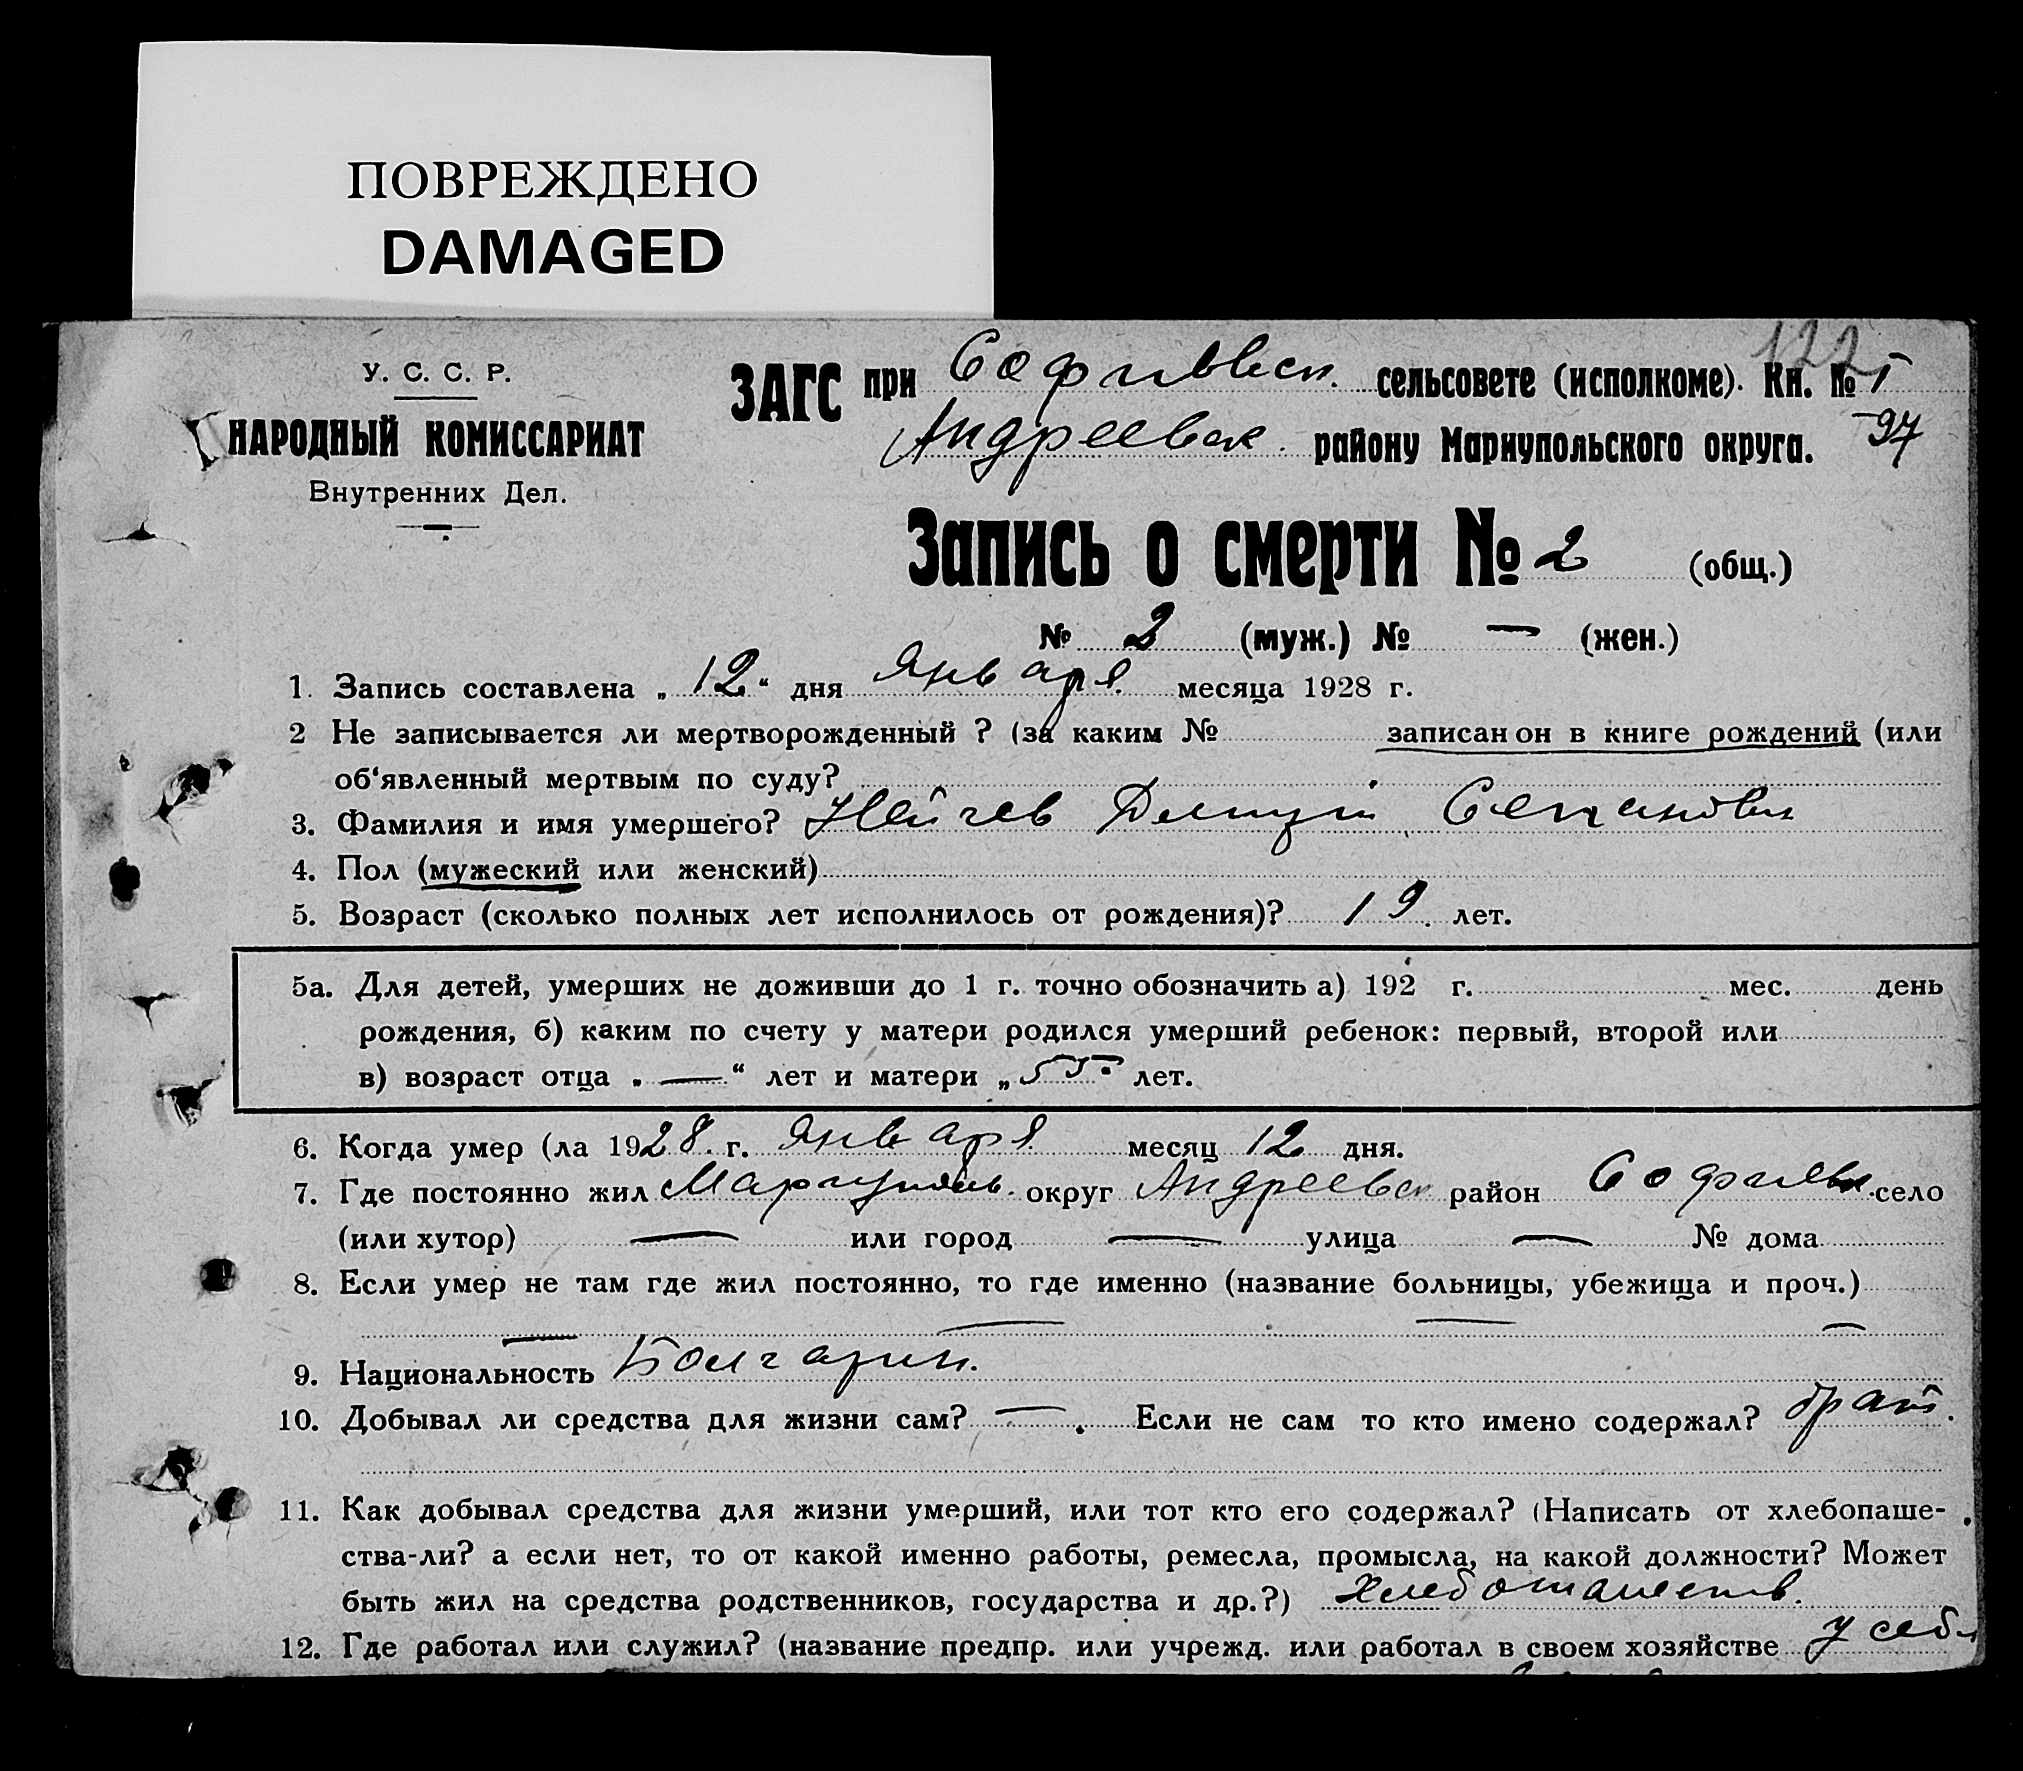 ПОВРЕЖДЕНО
DAMAGED
122
У. С. С. Р.
НАРОДНЫЙ КОМИССАРИАТ
Внутренних Дел.
ЗАГС при Софиевск. сельсовете (исполкоме). Кн. № I
Андреевск. району Мариупольского округа. 97
Запись о смерти № 2 (общ.)
№ 2 (муж.) № — (жен.)
1. Запись составлена „ 12 “ дня Января месяца 1928 г.
2 Не записывается ли мертворожденный ? (за каким № записан он в книге рождений (или
об‘явленный мертвым по суду?
3. Фамилия и имя умершего? Нейчев Дмитрий Степанович
4. Пол (мужеский или женский)
5. Возраст (сколько полных лет исполнилось от рождения)? 19 лет.
5а. Для детей, умерших не доживши до 1 г. точно обозначить а) 192 г. мес. день
рождения, б) каким по счету у матери родился умерший ребенок: первый, второй или
в) возраст отца „ — “ лет и матери „ 55 лет.
6. Когда умер (ла 1928. г. Января месяц 12 дня.
7. Где постоянно жил Мариупольс. округ Андреевск район Софиевк. село
(или хутор) — или город — улица — № дома
8. Если умер не там где жил постоянно, то где именно (название больницы, убежища и проч.)
— — — —
9. Национальность Болгарин.
10. Добывал ли средства для жизни сам? — . Если не сам то кто имено содержал? брат.
11. Как добывал средства для жизни умерший, или тот кто его содержал? (Написать от хлебопаше-
ства-ли? а если нет, то от какой именно работы, ремесла, промысла, на какой должности? Может
быть жил на средства родственников, государства и др.?) Хлебопашеств.
12. Где работал или служил? (название предпр. или учрежд. или работал в своем хозяйстве у себя